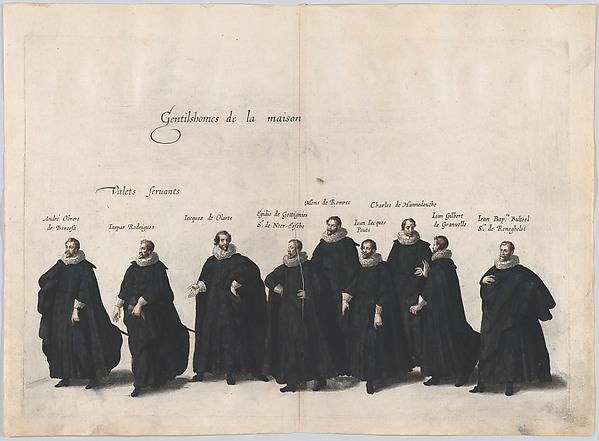 Gentilshomes de la maison
Valets servants
André Obrero
de Boneefa
Iaspar Rodrigues
Iacques de Olarte
Egidio de Gottignies
Sr. de Neer-Eassche
Mons de Romree
Ioan Iacques
Pouts
Charles de Hannedouche
Ioan Gilbert
de Granvelle
Ioan Bapte Bulteel
Sr. de Reneghelst